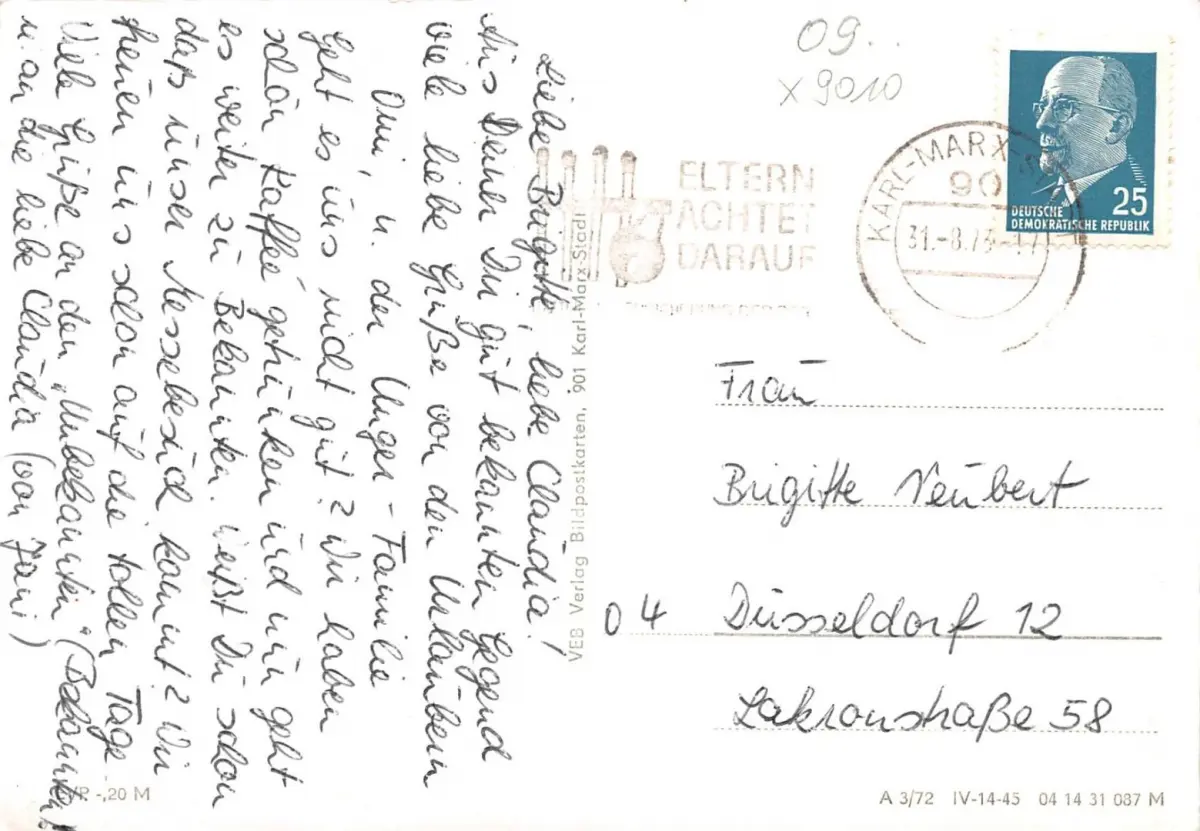 Liebe Brigitte, liebe Claudia!
Aus Deiner Dir gut bekannten Gegend
viele liebe Grüße von den Urlaubern
Omi, u der Unger-Familie
Geht es uns nicht gut? Wir haben
schön Kaffee getrunken und nun geht
es weiter zu Bekannten. Weißt Du schon
daß unser Messebesuch kommt? Wir
freuen uns schon auf die tollen Tage.
Viele Grüße an den "Unbekannten" (Bekannten)
u an die liebe Claudia (von Jani)
09..
x 9010
ELTERN
ACHTET
DARAUF
KARL-MARX-
90
31.-8.73-17
25
DEUTSCHE
DEMOKRATISCHE REPUBLIK
VEB Verlag Bildpostkarten, 901 Karl-Marx-Stadt
Frau
Brigitte Neubert
D 4 Düsseldorf 12
Lakronstraße 58
-,20 M
A 3/72 IV-14-45 04 14 31 087 M